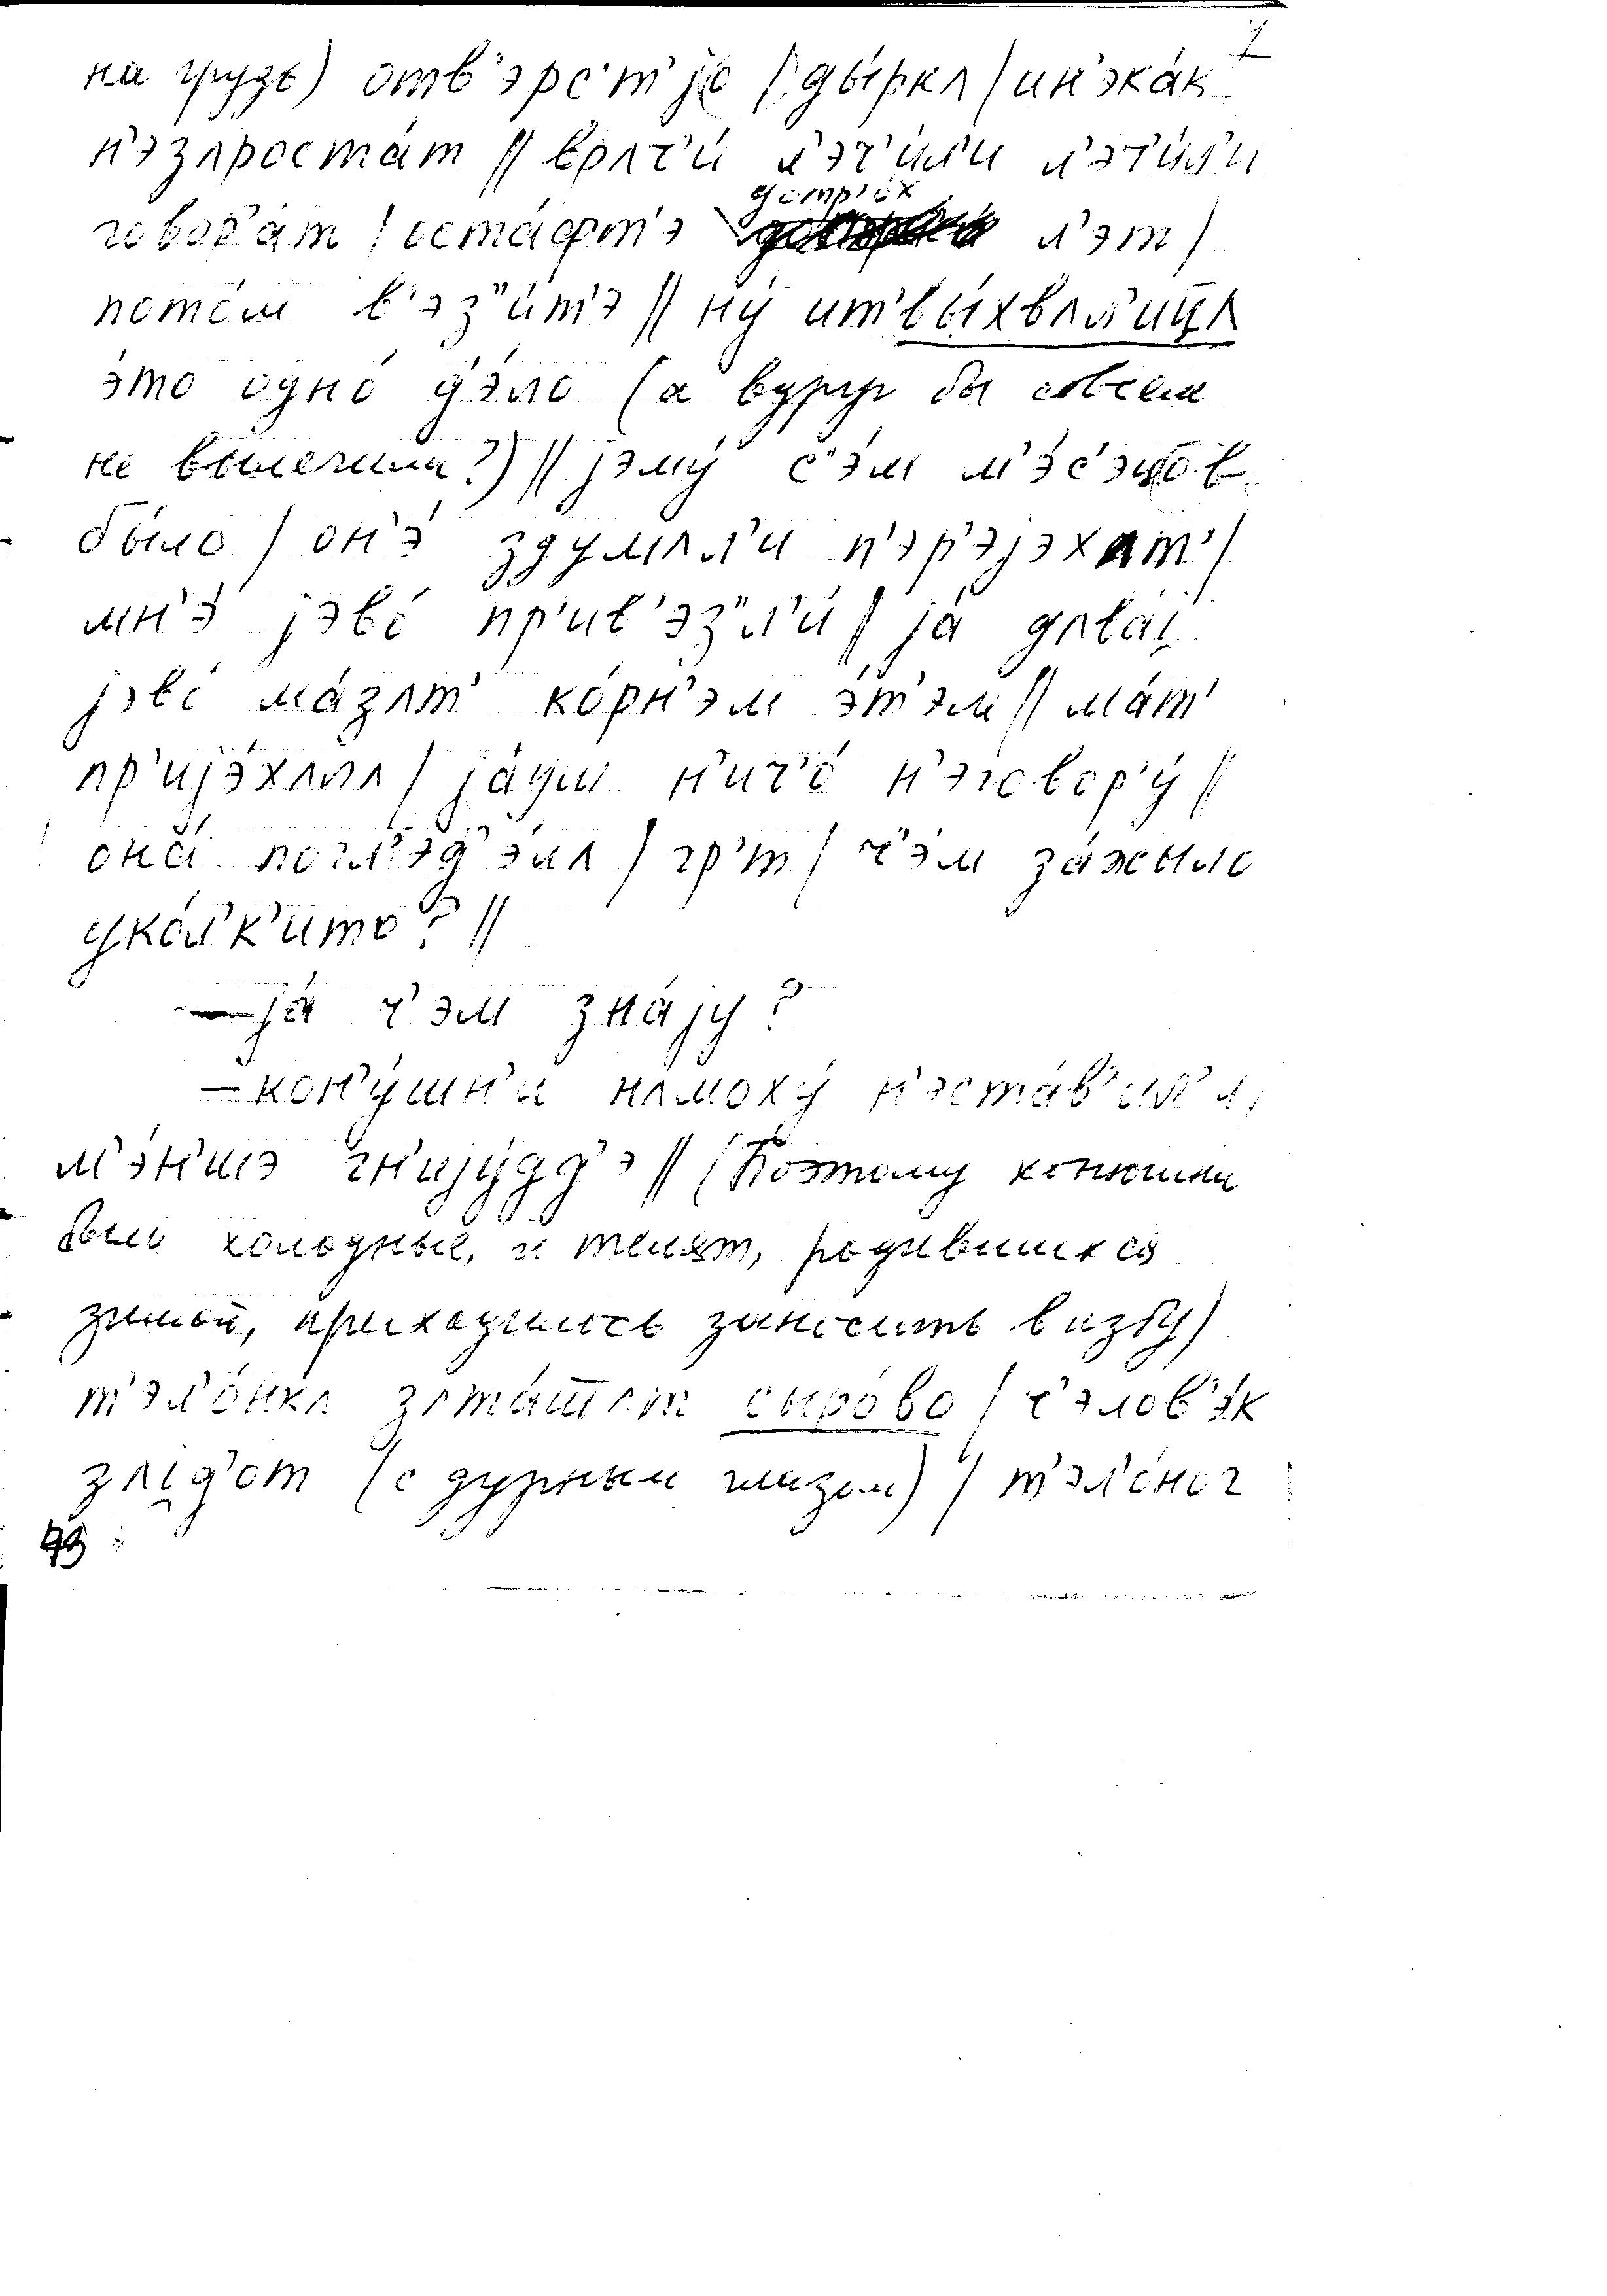 7
на грудь) отв'эрс'т'јо / ды́ркʌ / ин'эка́к
н'эзʌроста́т // врʌч'и́ л'эч'и́л'и л'эч'и́л'и
говор'а́т / оста́фт'э дотр'о́х л'эт /
пото́м в'эз'и́т'э // ну́ ит'вы́хвʌл'ицʌ
э́то одно́ д'э́ло (а вдруг бы совсем
не вылечили?) // јэму́ с'э́м м'э́с'эцов
бы́ло / он'э́ здумʌл'и п'эр'эјэхат' /
мн'э́ јэво́ пр'ив'эз'л'и́ / ја́ дʌва́ј
јэво́ ма́зʌт' ко́рн'эм э́т'эм // ма́т'
пр'ијэ́хʌлʌ / ја́уш н'ич'о́ н'эговор'у́ //
она́ погл'эд'э́лʌ / гр'т / ч'э́м за́жыло
уко́л'к'ито? //
— ја́ ч'эм зна́ју?
— кон'у́шн'и нʌмоху́ н'эста́в'ил'и,
м'э́н'шэ гн'ију́дд'э // (Поэтому конюшни
были холодные, и телят, родившихся
зимой, приходилось заносить в избу)
т'эл'о́нкʌ зʌта́шшʌт сыро́во / ч'элов'э́к
зʌјд'от (с дурным глазом) / т'эл'о́ног